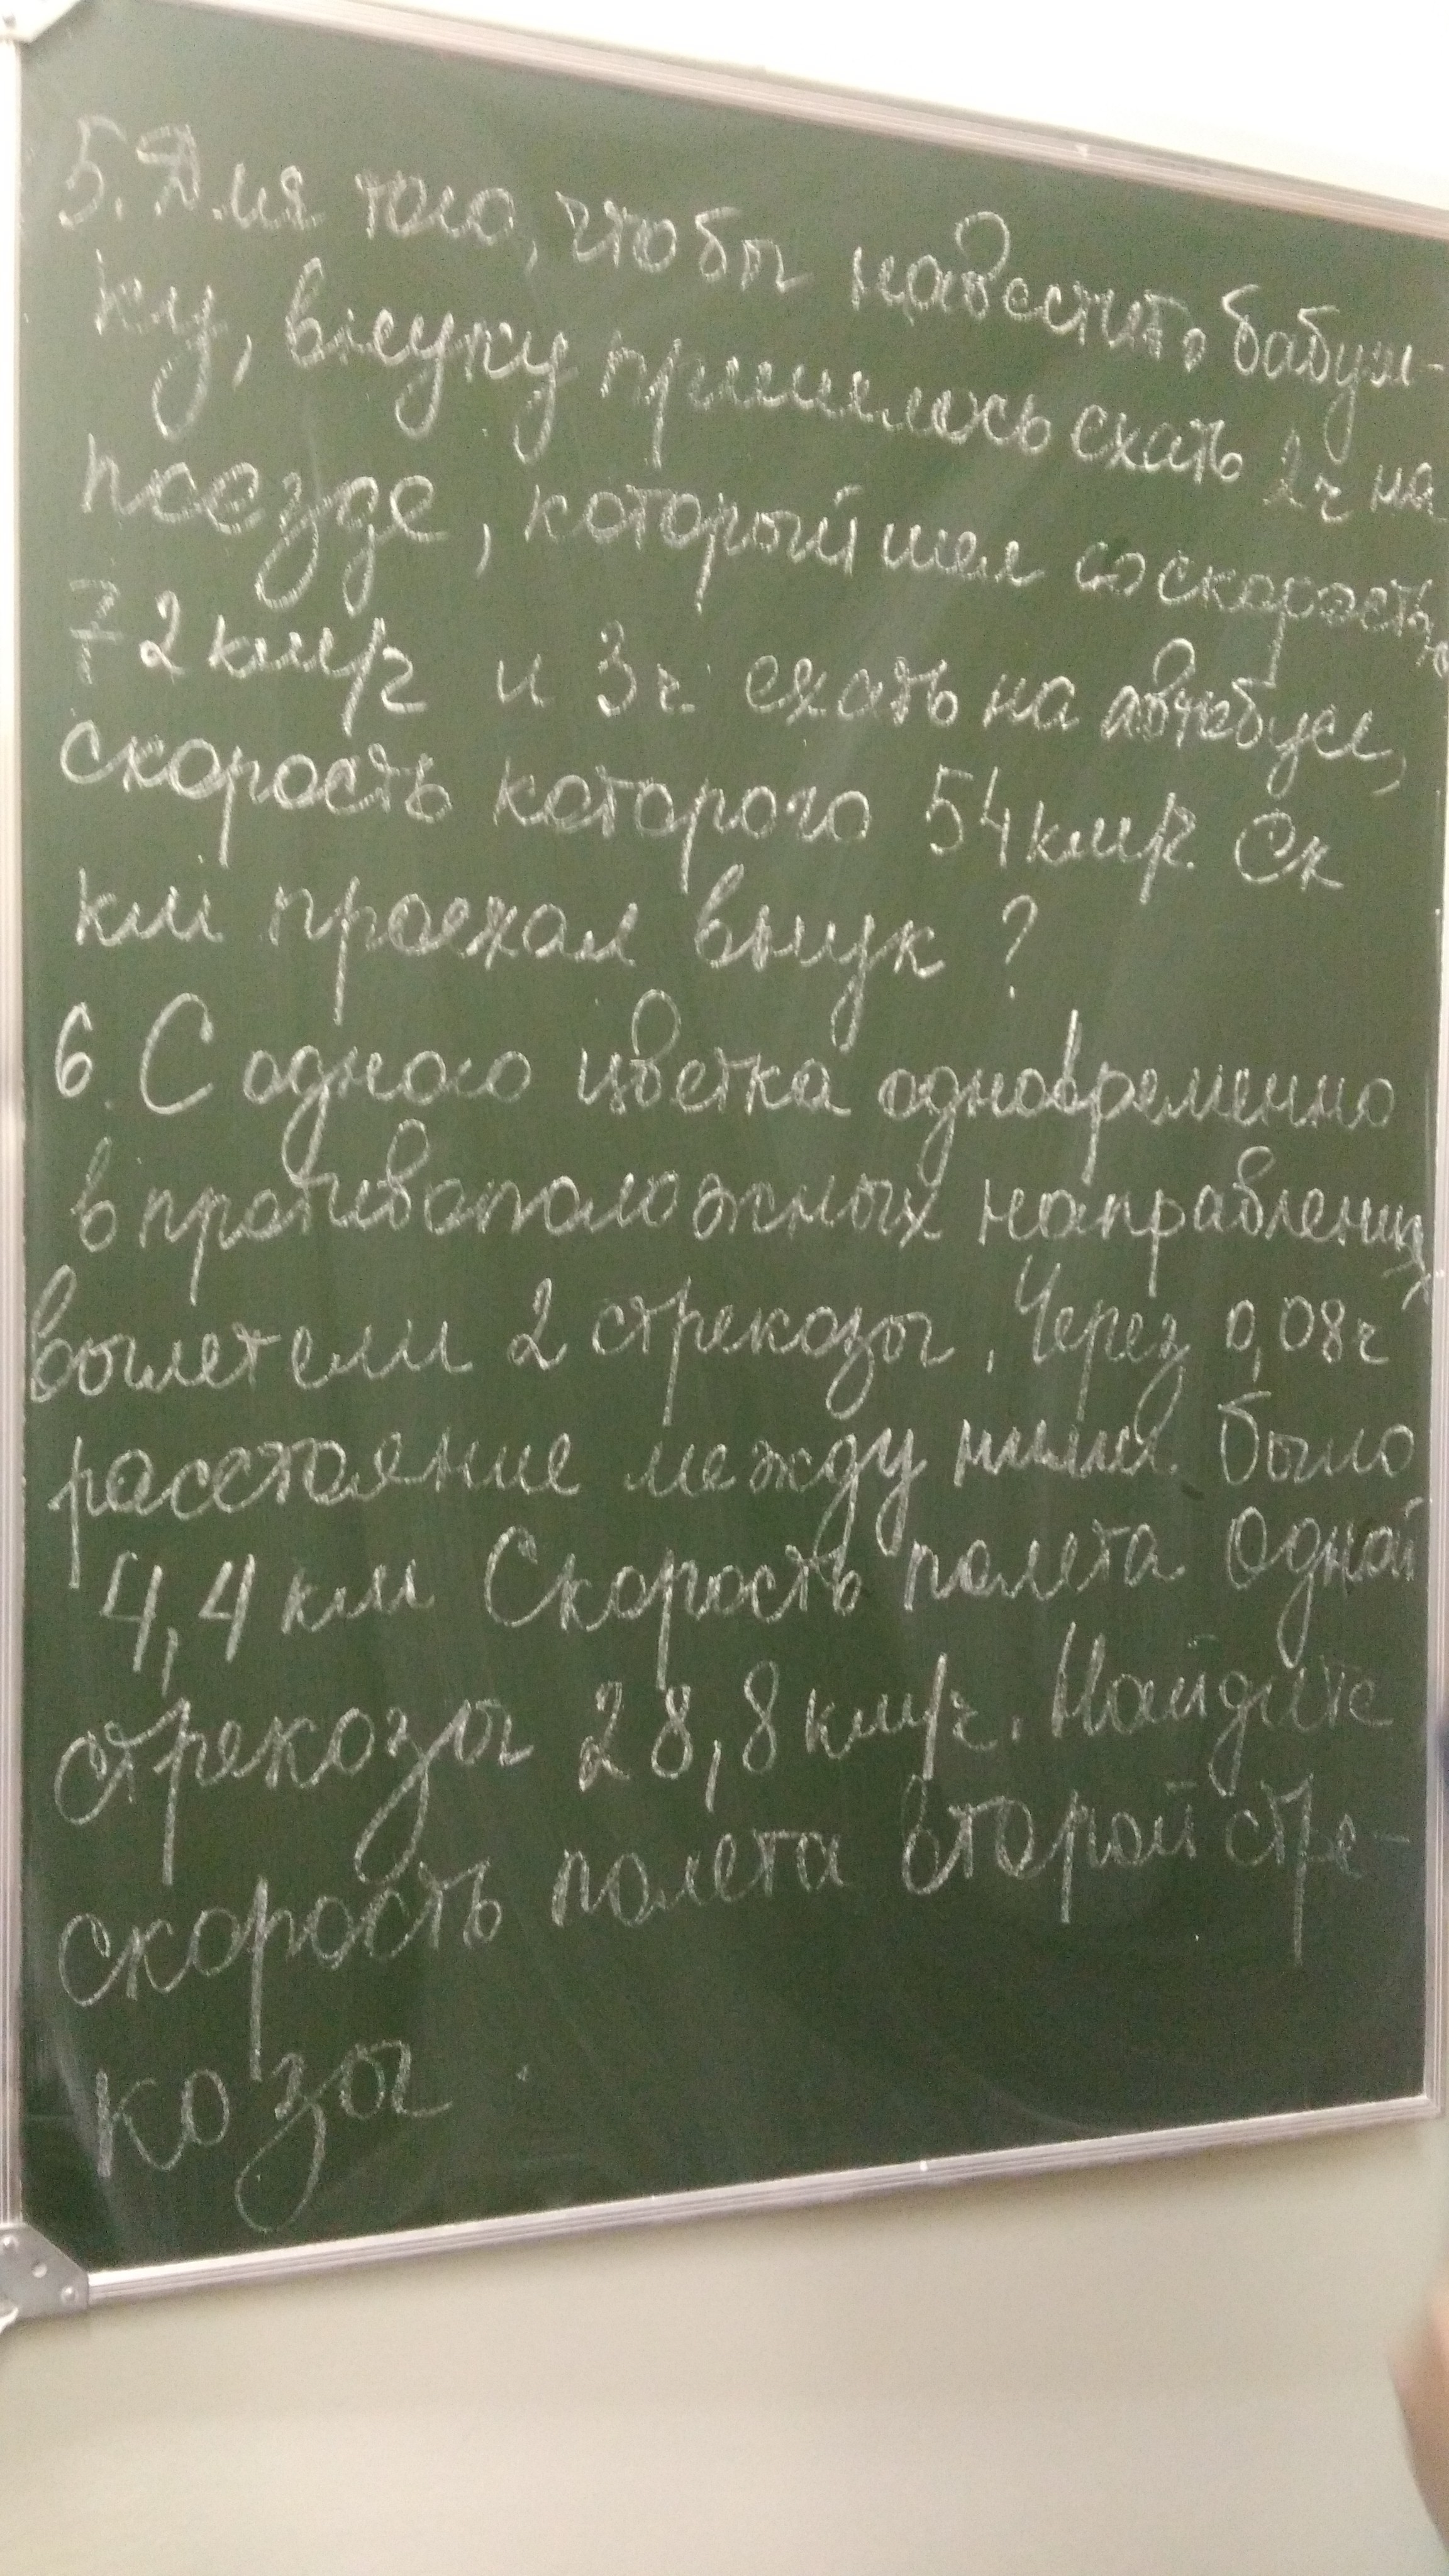 5. Для того, чтобы навестить бабуш-
ку, внуку пришлось ехать 2ч на
поезде, который шел со скоростью
72 км/ч и 3ч. ехать на автобусе,
скорость которого 54 км/ч. Ск
км проехал внук ?
6. С одного цветка одновременно
в противоположных направлениях
вылетели 2 стрекозы. Через 0,08ч
расстояние между ними было
4,4 км Скорость полета одной
стрекозы 28,8 км/ч. Найдите
скорость полета второй стре-
козы.